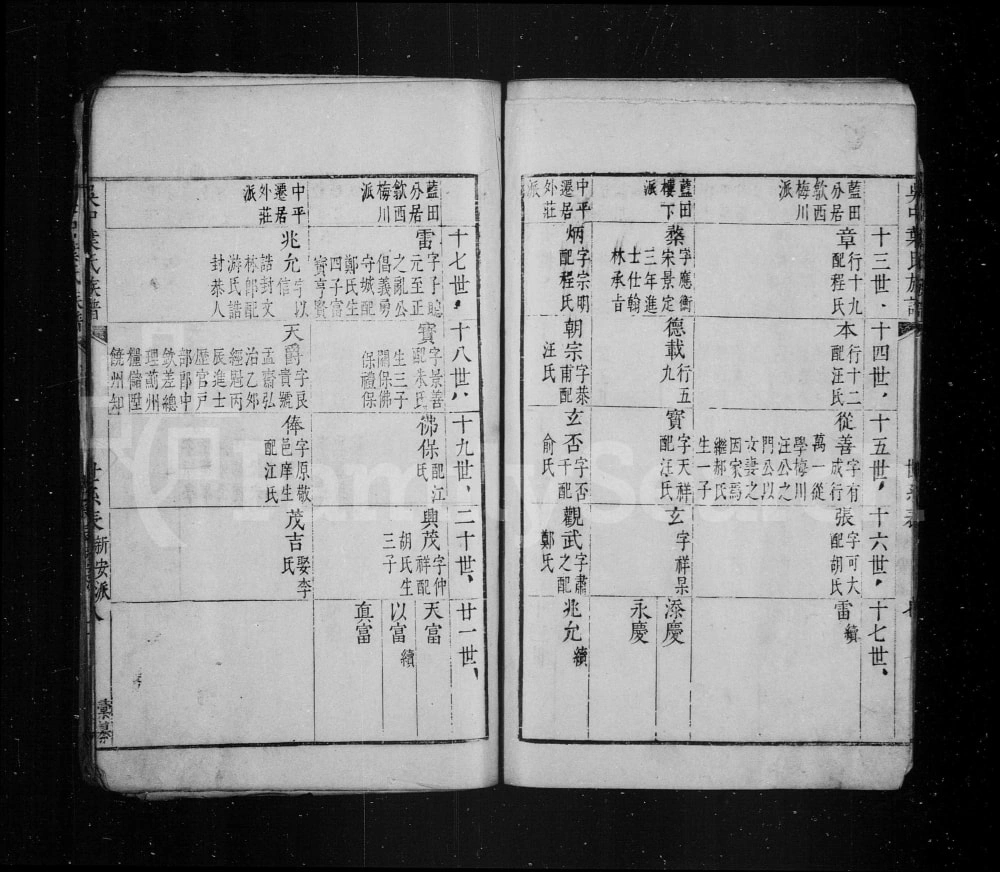 吳中葉氏族譜
世系表
十三世
十四世
十五世
十六世
十七世
藍田
分居
歙西
梅川
派
章
行十九
配程氏
本
行十二
配汪氏
從善
字有
成行
萬一從
學梅川
汪公之
門公以
女妻之
因家焉
繼郝氏
生一子
張
字可大
配胡氏
雷
續
藍田
樓下
派
字應衡
宋景定
三年進
士仕翰
林承旨
德載
行五
九
寶
字天祥
配汪氏
玄
字祥杲
添慶
永慶
中平
遷居
外莊
派
炳
字宗明
配程氏
朝宗
字恭
甫配
汪氏
玄否
字否
干配
俞氏
觀武
字肅
之配
鄭氏
兆允
續
十七世
十八世
十九世
二十世
廿一世
藍田
分居
歙西
梅川
派
雷
字子聲
元至正
之亂公
倡義勇
守城配
鄭氏生
四子富
寶亨賢
寶
字景善
配朱氏
生三子
關保佛
保禮保
彿保
配江
氏
興茂
字仲
祥配
胡氏生
三子
天富
以富
續
眞富
中平
遷居
外莊
派
兆允
字以
信
誥封文
林郎配
游氏誥
封恭人
天爵
字良
貴號
孟齋弘
治乙夘
經魁丙
辰進士
歷官戸
部郎中
欽差總
理薊州
糧儲陞
饒州知
俸
字原敬
邑庠生
配江氏
茂吉
娶李
氏
世系表
新安派
八
吳中葉氏族譜
FamilySearch